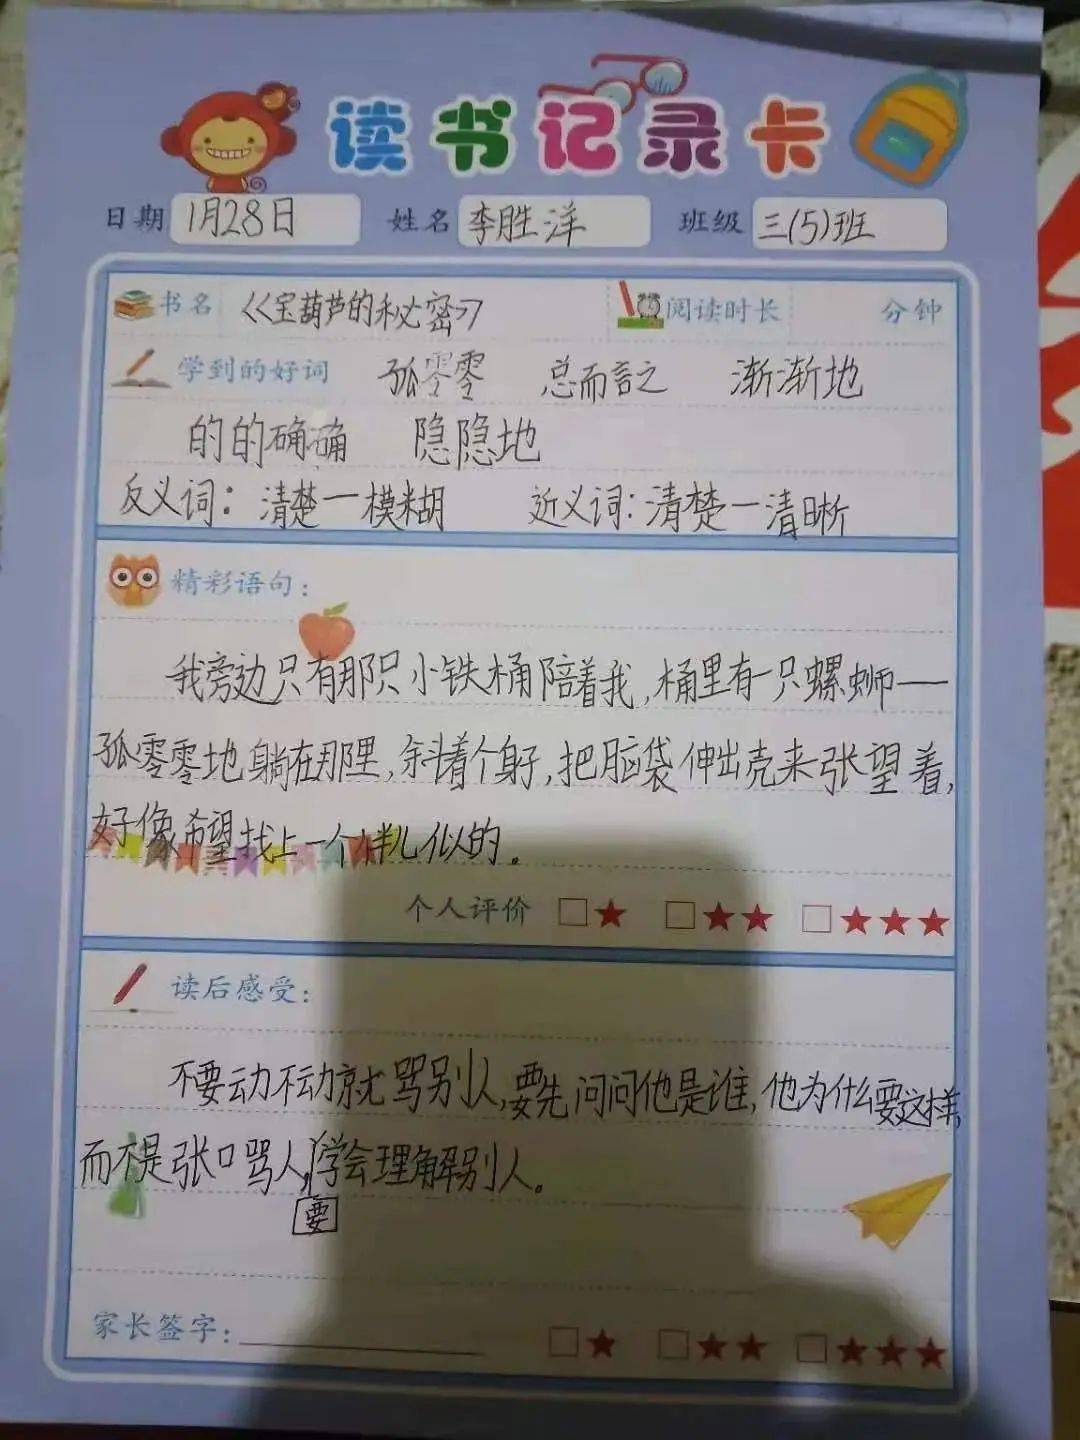 读书记录卡
日期 1月28日 姓名 李胜洋 班级 三(5)班
书名 <<宝葫芦的秘密>> 阅读时长 分钟
学到的好词 孤零零 总而言之 渐渐地
的的确确 隐隐地
反义词：清楚一模糊 近义词：清楚一清晰
精彩语句：
我旁边只有那只小铁桶陪着我,桶里有一只螺蛳——
孤零零地躺在那里,斜着个身子,把脑袋伸出壳来张望着,
好像希望找上一个伴儿似的。
个人评价 □★ □★★ □★★★
读后感受：
不要动不动就骂别人,要先问问他是谁,他为什么要这样,
而不是张口骂人,学会理解别人。
要
家长签字：
□★ □★★ □★★★